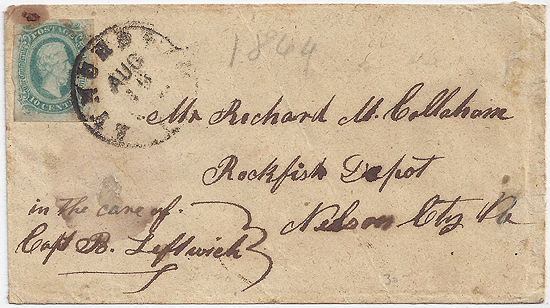 POSTAGE
10 CENTS
LYNCHBURG
AUG
15
1864
Mr Richard M. Callaham
Rockfish Depot
Nelson Cty Va
in the care of.
Capt B. Leftwich